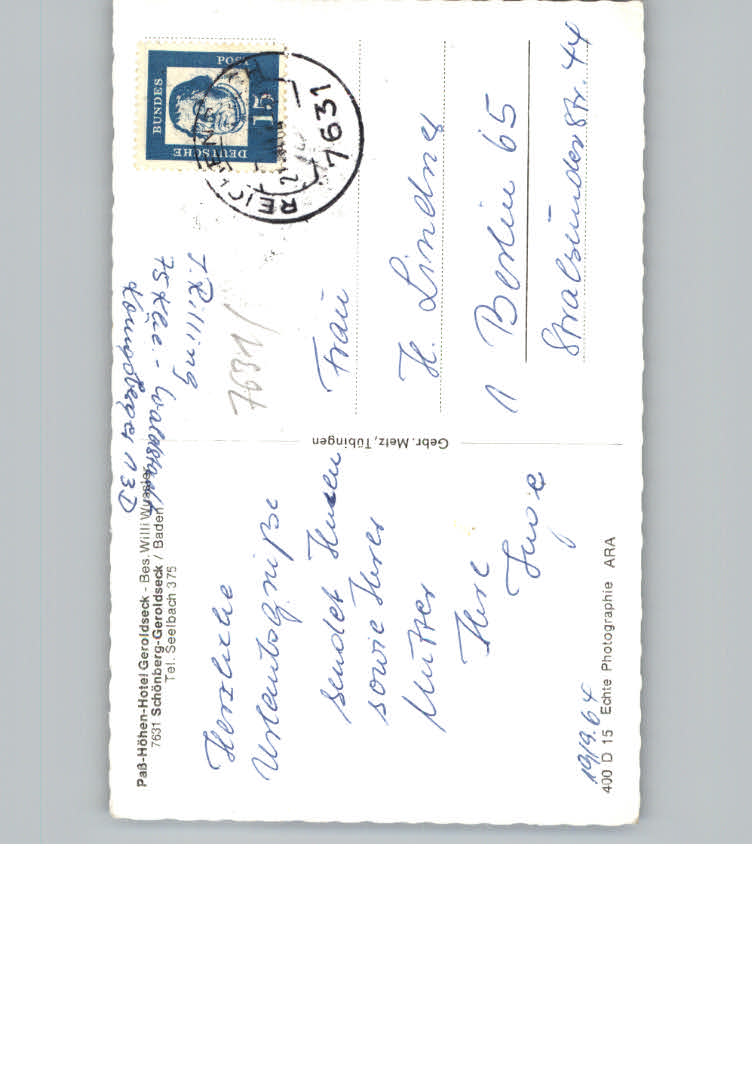 Paß-Höhen-Hotel Geroldseck - Bes. Willi
7631 Schönberg-Geroldseck / Baden
Tel. Seelbach 375
Herzliche
Urlaubsgrüße
sendet Ihnen
sowie Ihrer
Mutter
Ihre
Inge
19/9.64
400 D 15 Echte Photographie ARA
Gebr. Metz, Tübingen
J. Rilling
75 Klhe. - Waldstadt
Königsberger 13 D
7631/
DEUTSCHE
BUNDES
POST
15
7631
Frau
H. Lindner
1 Berlin 65
Stralsunder Str. 44